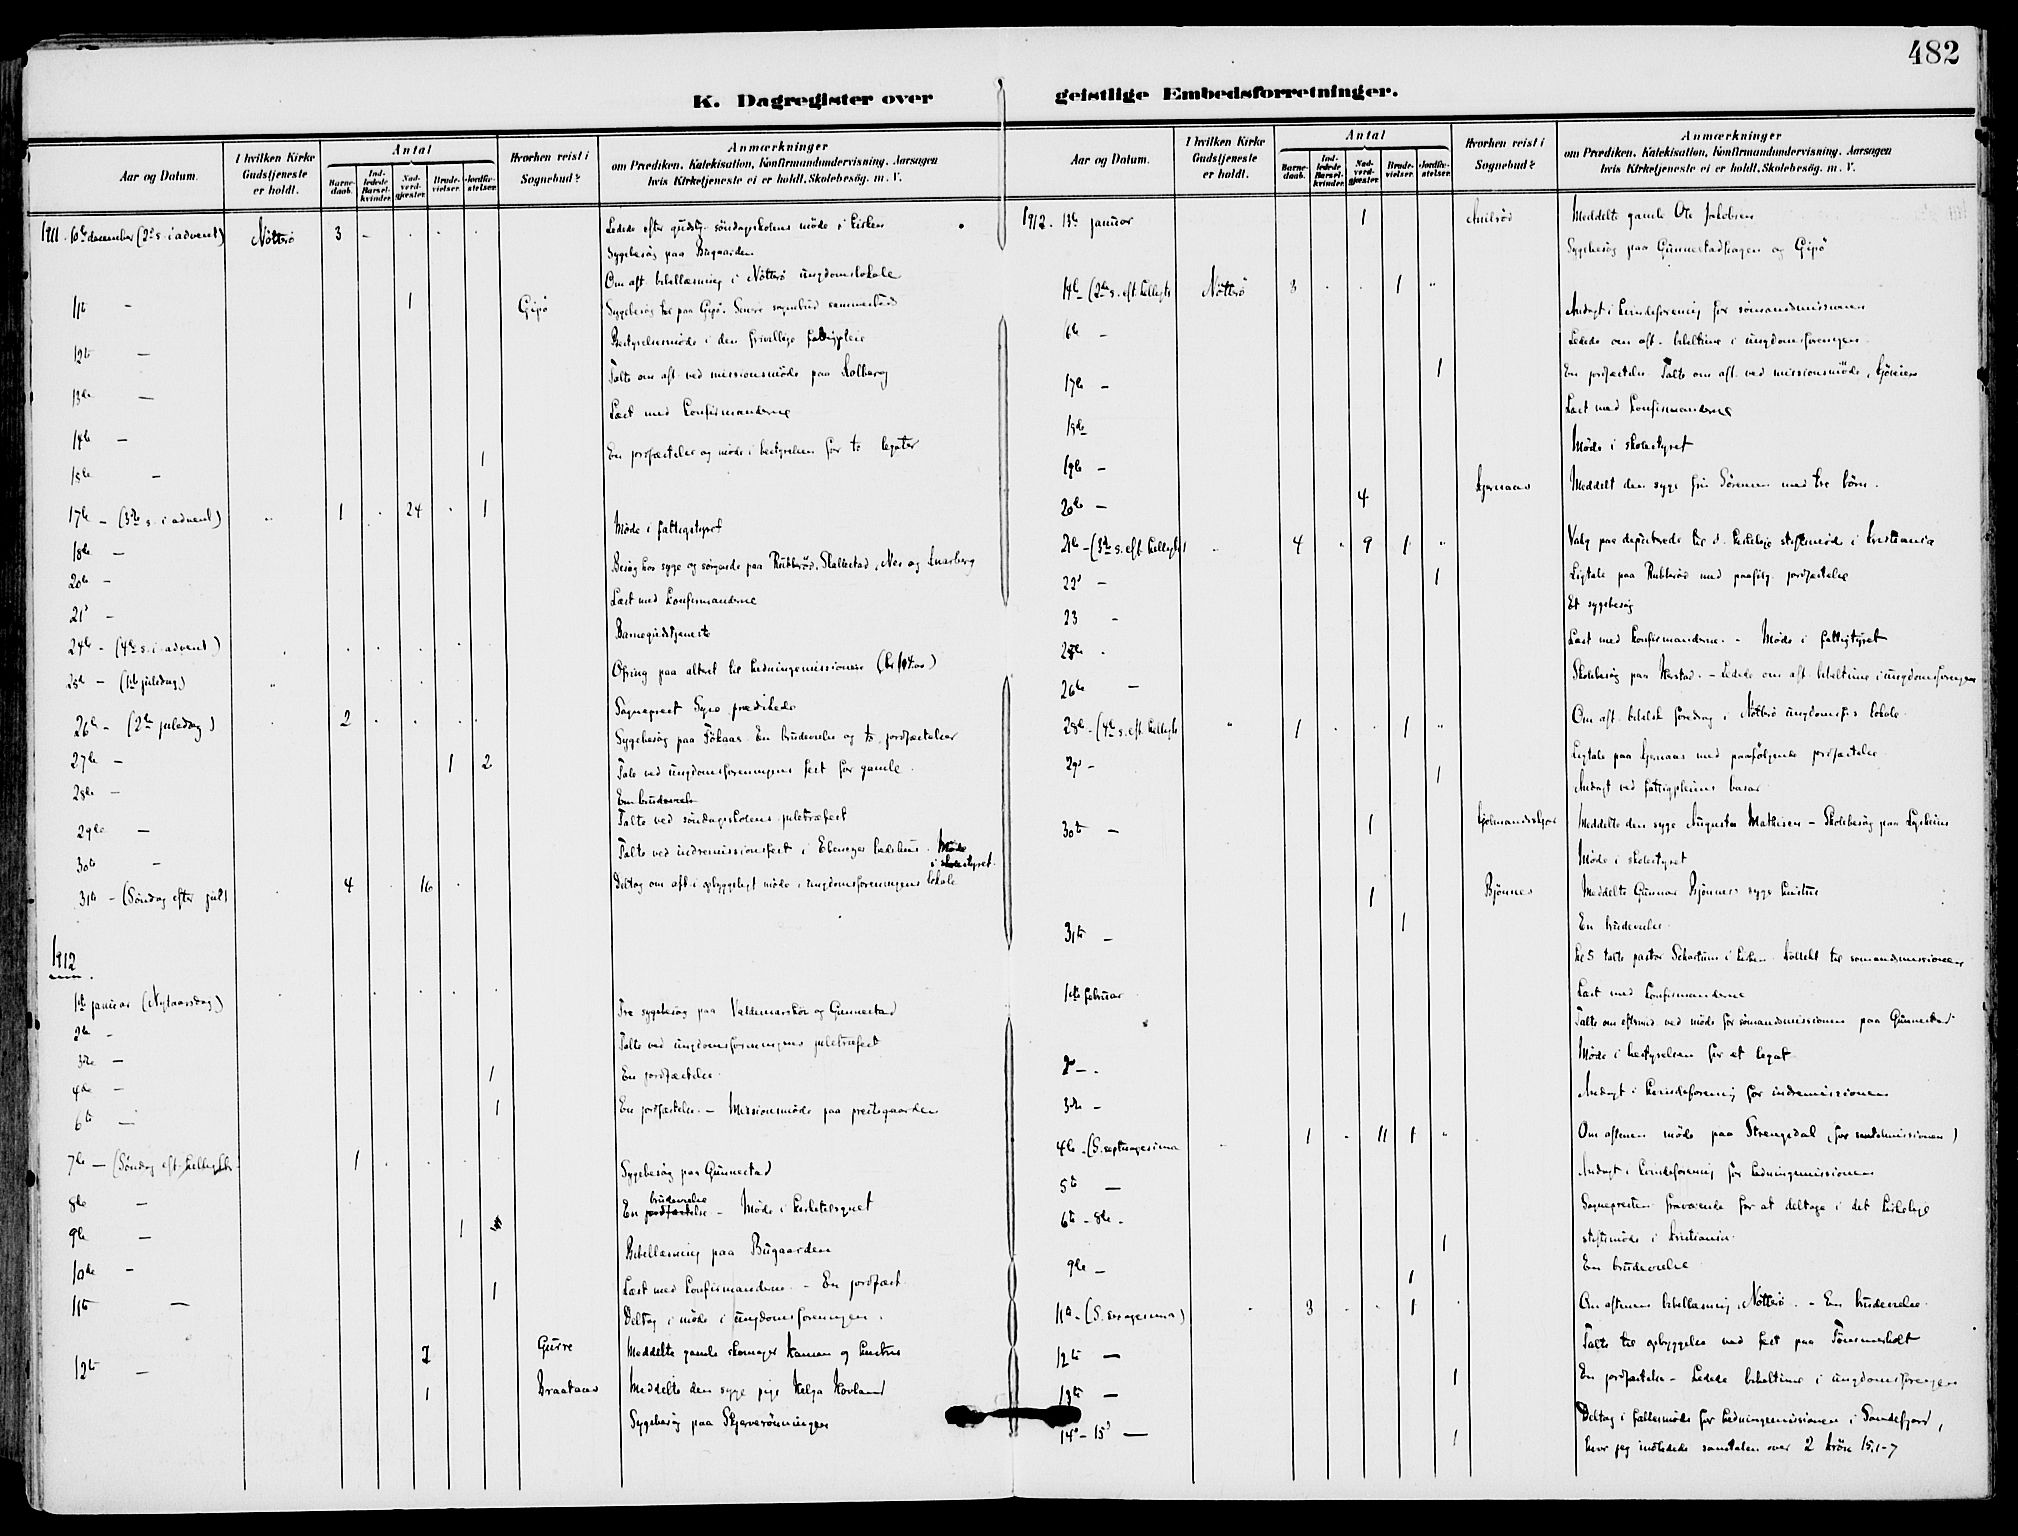 482
K. Dagregister over geistlige Embedsforretninger.
Aar og Datum.
I hvilken Kirke Gudstjeneste er holdt.
Antal
Barnedaab.
Indledede Barselkvinder.
Nadverdgjæster.
Brudevielser.
Jordfæstelser.
Hvorhen reist i Sognebud?
Anmærkninger
om Prædiken, Katekisation, Konfirmandundervisning, Aarsagen
hvis Kirketjeneste ei er holdt, Skolebesög, m. V.
1911. 10de december (2d s. i advent) Nötterö 3 - Ledede efter gudstj. söndagsskolens möde i kirken
Sygebesög paa Bugaarden
Om aft. bibellæsning i Nötterö ungdomslokale
11te - 1 Gipö Sygebesög paa Gipö. Senere sognebud sammesteds
12te - Bestyrelsesmöde i den frivillige fattigpleie
13de - Talte om aft. ved missionsmöde paa Kolberg
14de - Læst med konfirmanderne
15de - 1 En jordfæstelse og möde i bestyrelsen for to legater
17de - (3die s. i advent) " 1 . 24 . 1
18de - Möde i fattigstyret
20de - Besög hos syge og sörgende paa Rubberöd, Skallestad, Nes og
21d - Læst med konfirmanderne
24de - (4de s. i advent) Barnegudstjeneste
25de - (1ste juledag) " Ofring paa altret til hedningemissionen (kr 104.00)
26de - (2den juledag) 2 Sogneprest prædikede
27de - 1 2 Sygebesög paa Fökaas. En brudevielse og to jordfæstelser
28de - Tale ved ungdomsforeningens fest for gamle.
En brudevielse
29de - Talte ved söndagsskolens juletræfest
30te - Talte ved indremissionsfest i Ebenezer bedehus. Möde i skolestyret.
31te - (Söndag efter jul) 4 . 16 . Deltog om aft. i opbyggeligt möde i ungdomsforeningens lokale
1912.
1ste januar (Nytaarsdag)
2de - Tre sygebesög paa Valdemarskov og Gunnestad
3die - Talte ved ungdomsforeningens juletræfest
4de - 1 En jordfæstelse.
6te - 1 En jordfæstelse. - Missionsmöde paa prestegaarden
7de - (Söndag eft. helligtr. 1
8de - Sygebesög paa Gunnestad
9de - 1 En jordfæstelse brudevielse - Möde i kirketilsynet
10de - Bibellæsning paa Bugaarden
11te - 1 Læst med konfirmanderne. - En jordfæst.
Deltog i möde i ungdomsforeningen.
12te - 2 Gurre Meddelte gamle skomager Hansen og hustru
1 Braataas Meddelte den syge pige Helga Hovland
Sygebesög paa Skjerverönningen
Aar og Datum.
I hvilken Kirke Gudstjeneste er holdt.
Antal
Barnedaab.
Indledede Barselkvinder.
Nadverdgjæster.
Brudevielser.
Jordfæstelser.
Hvorhen reist i Sognebud?
Anmærkninger
om Prædiken, Katekisation, Konfirmandundervisning, Aarsagen
hvis Kirketjeneste ei er holdt, Skolebesög, m. V.
1912. 13de januar 1 Meddelte gamle Ole Jakobsen
Sygebesög paa Gunnestadhagen og Gipö
14de (2den s. eft. helligtr Nötterö 3 . . 1 "
6de - Andagt i kvindeforening for sömandsmissionen
Ledede om aft. bibeltime i ungdomsforeningen.
17de - 1 En jordfæstelse. Talte om aft. ved missionsmöde,
18de Læst med konfirmanderne
19de - Möde i skolestyret
20de - 4 Kjernaas Meddelt den syge fru Sörensen med tre börn.
21de - (3die s. eft. helligtr " 4 " 9 1 " Valg paa deputerede til d. kirkelige stiftsmöde i Kristiania
22d - 1 Ligtale paa Rubberöd med paafölg. jordfæstelse
23 - Et sygebesög
25de - Læst med konfirmanderne. - Möde i fattigstyret
26de - Skolebesög paa Herstad. - Ledede om aft. bibeltime i ungdomsforeningen
28de - (4de s. eft. helligtr " 1 . . 1 " Om aft. bibelsk foredrag i Nötterö ungdomsf.s lokale.
29d - 1 Ligtale paa Kjernaas med paafölgende jordfæstelse
Andagt ved fattigpleiens basar
30te - 1 Meddelte den syge Augusta Mathisen - Skolebesög paa
Möde i skolestyret
1 Bjönnes Meddelte Gunnar Bjönnes syge hustru
31te - 1 En brudevielse.
kl 5 talte pastor i kirken. Kollekt til sömandsmissionen
1ste februar Læst med konfirmanderne
Talte om efterm. ved möde for sömandsmissionen paa Gunnestad
2d - Möde i bestyrelsen for et legat
3die - Andagt i kvindeforening for indremissionen
4de - (S. septuagesima 1 . 11 1 " Om aftenen möde paa Strengsdal (for sandsmissionen)
5te - Andagt i kvindeforening for hedningemissionen
6te - 8de - Sognepresten fraværende for at deltage i det kirkelige
1 stiftsmöde i Kristiania.
9de - 1 En brudevielse
11te - (S. sexagesima) 3 . . 1 . Om aftenen bibellæsning, Nötterö. - En brudevielse.
12te - Talte til opbyggelse ved fest paa Tömmerholt
13te - 1 En jordfæstelse - Ledede bibeltime i ungdomsforeningen
14d - 15d - 1 Deltog i fællesmöde for hedningemissionen i Sandefjord,
hvor jeg indledede samtalen over 2 krön 15,1-7